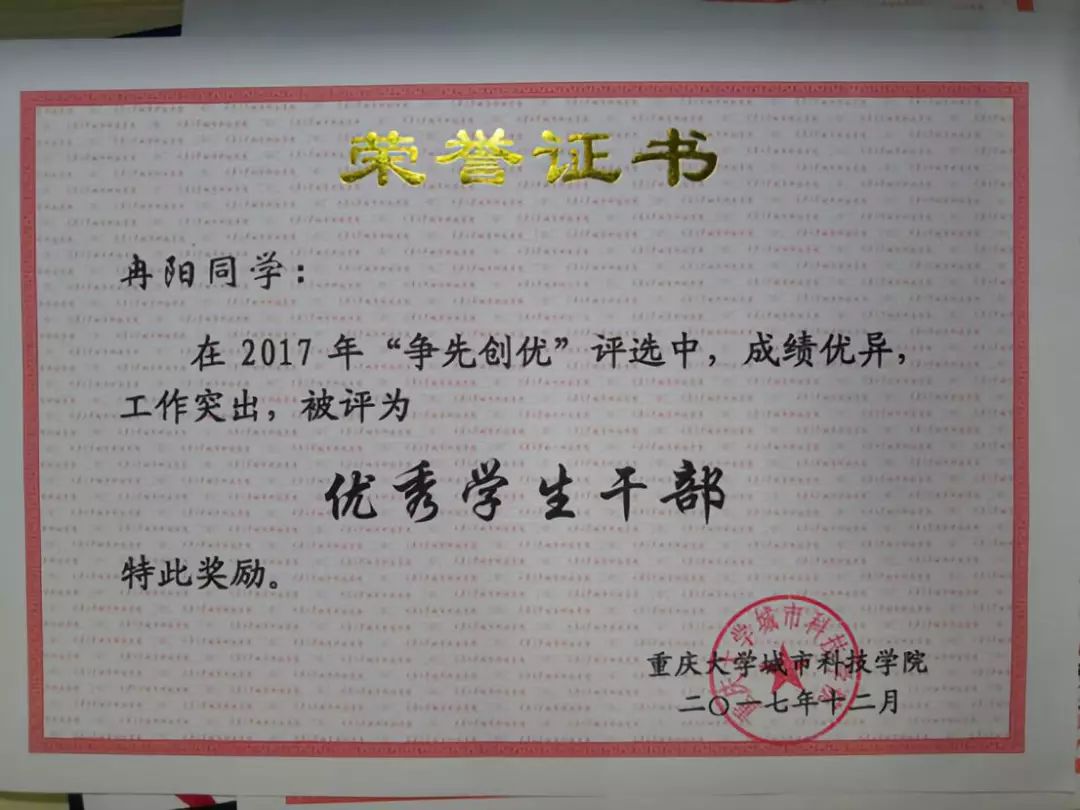 荣誉证书
冉阳同学：
在 2017 年“争先创优”评选中，成绩优异，
工作突出，被评为
优秀学生干部
特此奖励。
重庆大学城市科技学院
二〇一七年十二月
重庆大学城市科技学院